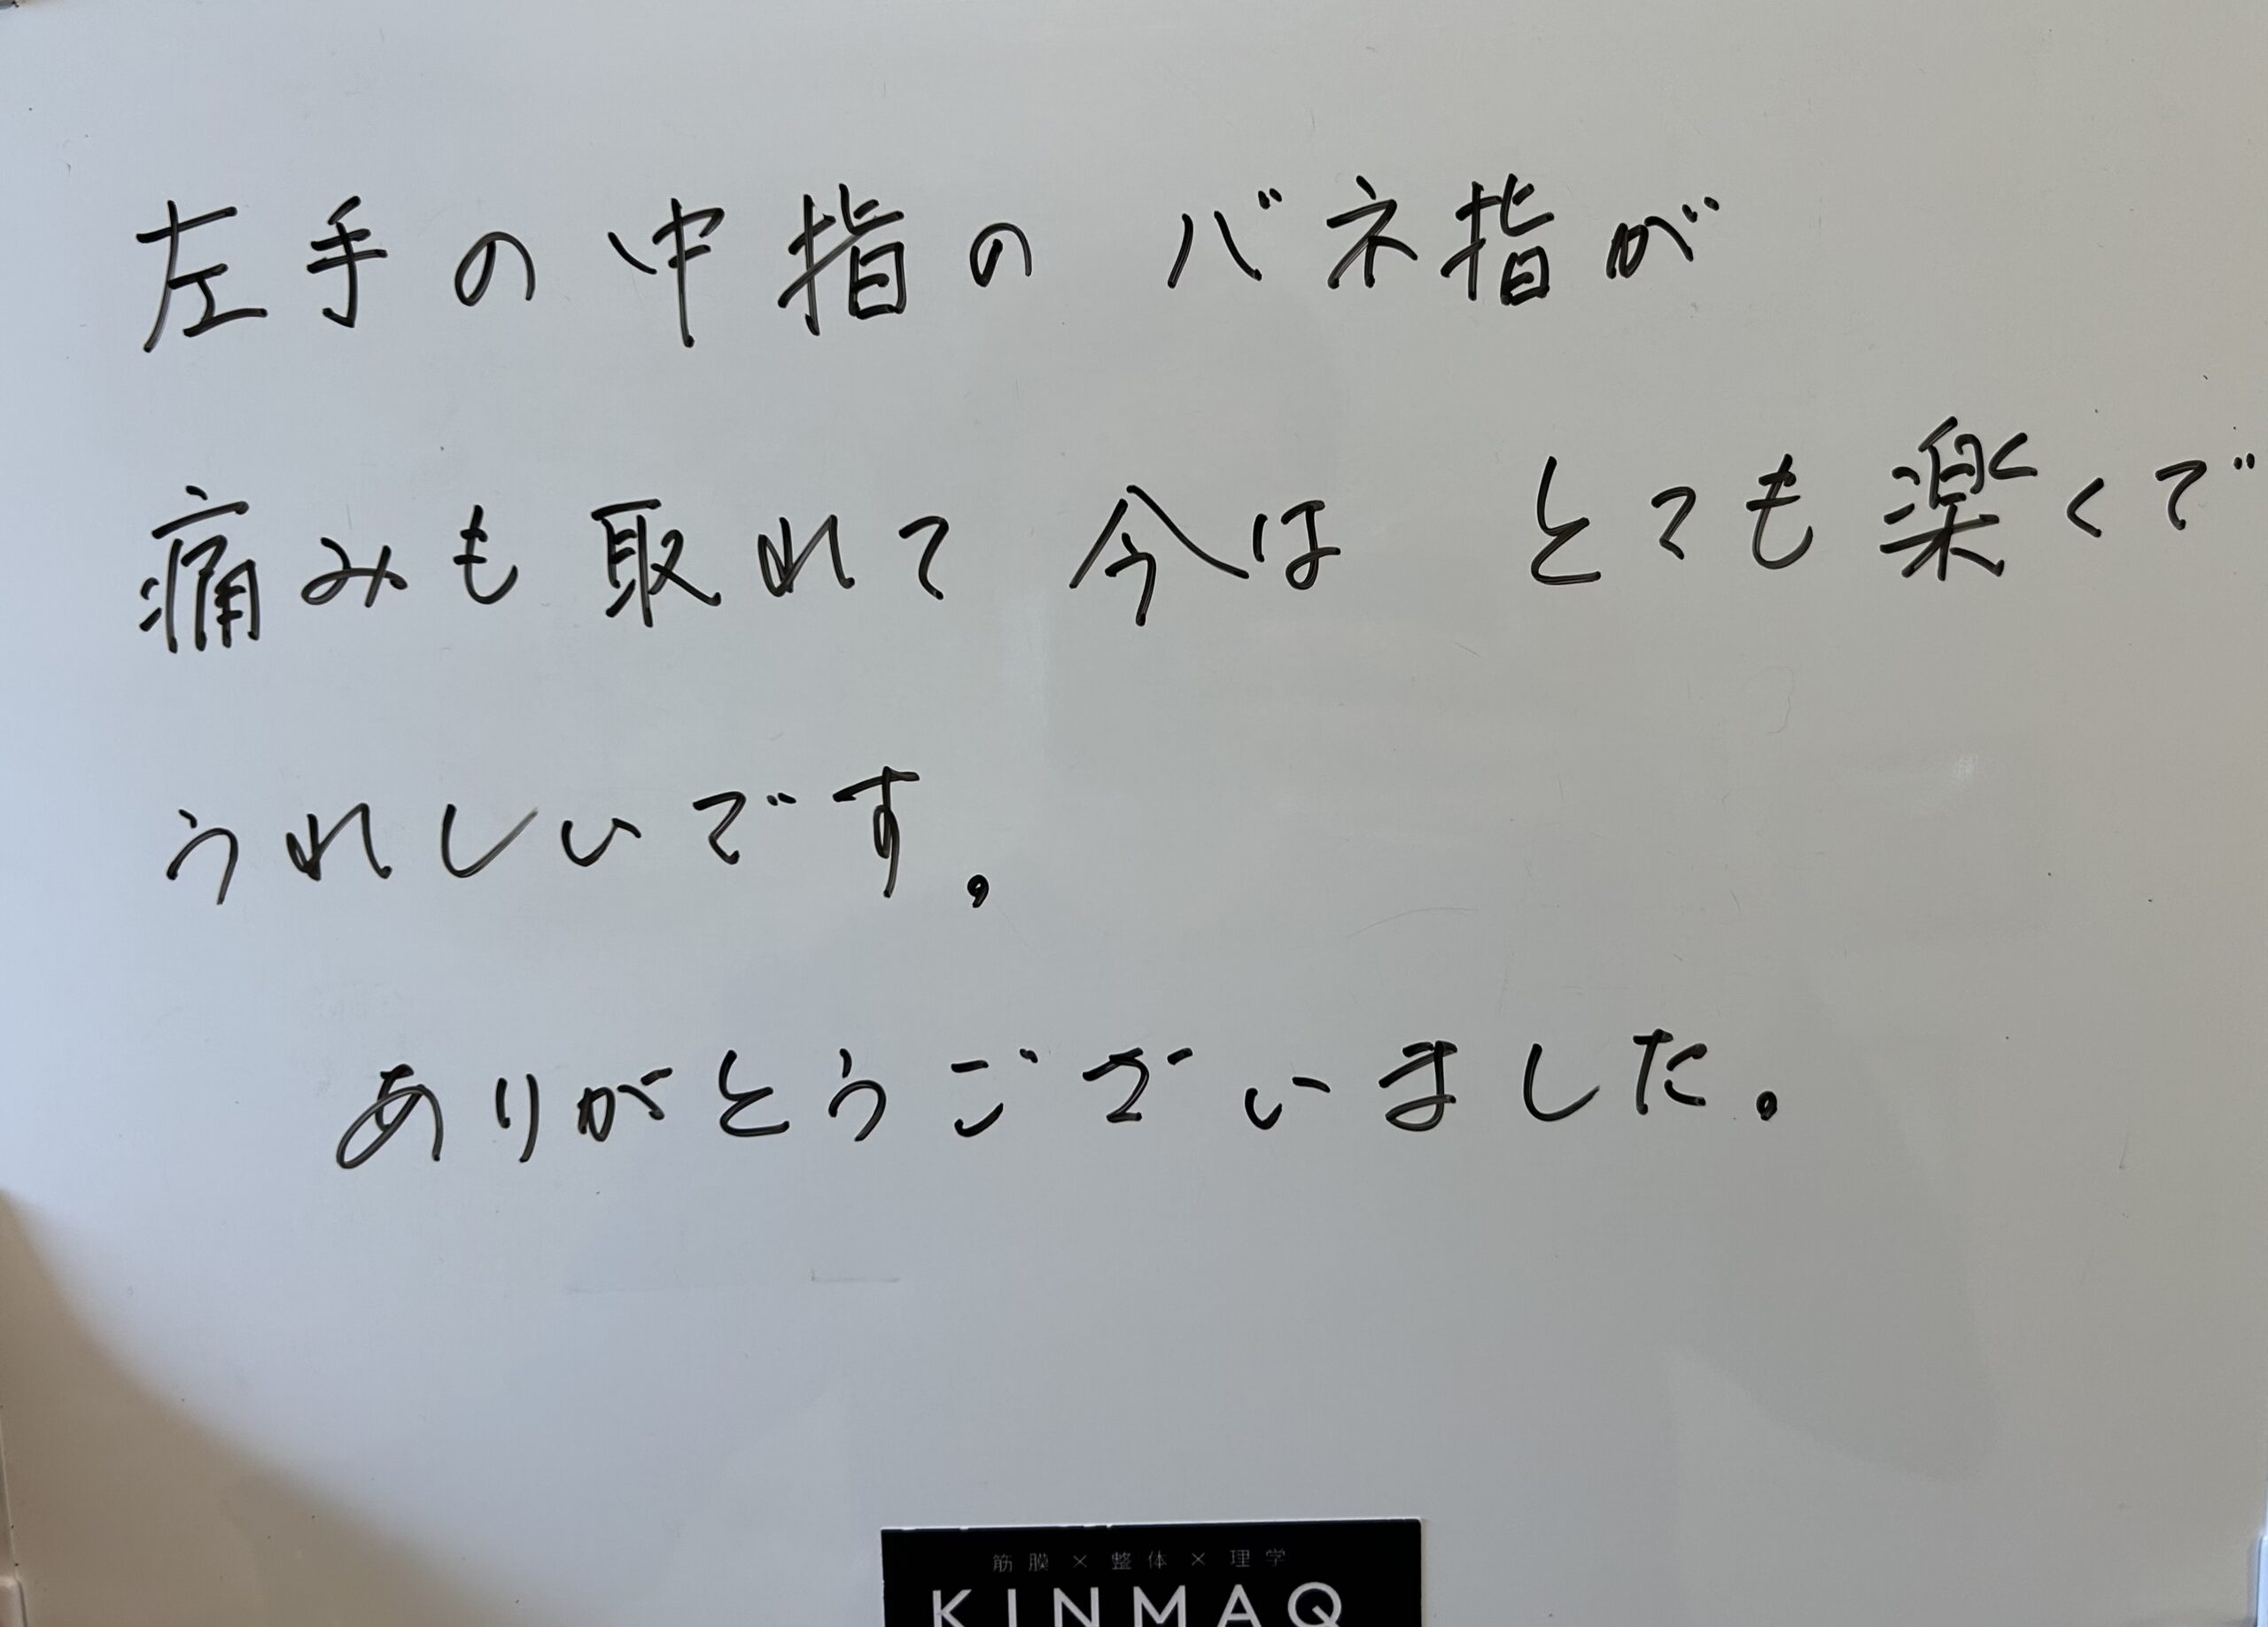 左手の中指のバネ指が
痛みも取れて今はとても楽くで
うれしいです。
ありがとうございました。
筋膜×整体×理学
KINMAQ